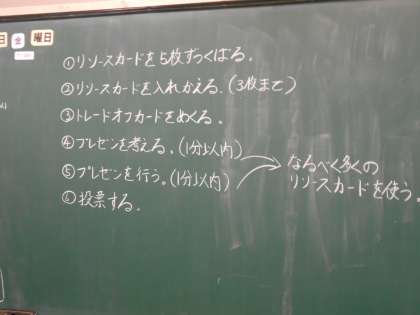 日 金 曜日
①リソースカードを5枚ずつくばる。
②リソースカードを入れかえる。(3枚まで)
③トレードオフカードをめくる。
④プレゼンを考える。(1分以内)
⑤プレゼンを行う。(1分以内)
⑥投票する。
なるべく多くの
リソースカードを使う。